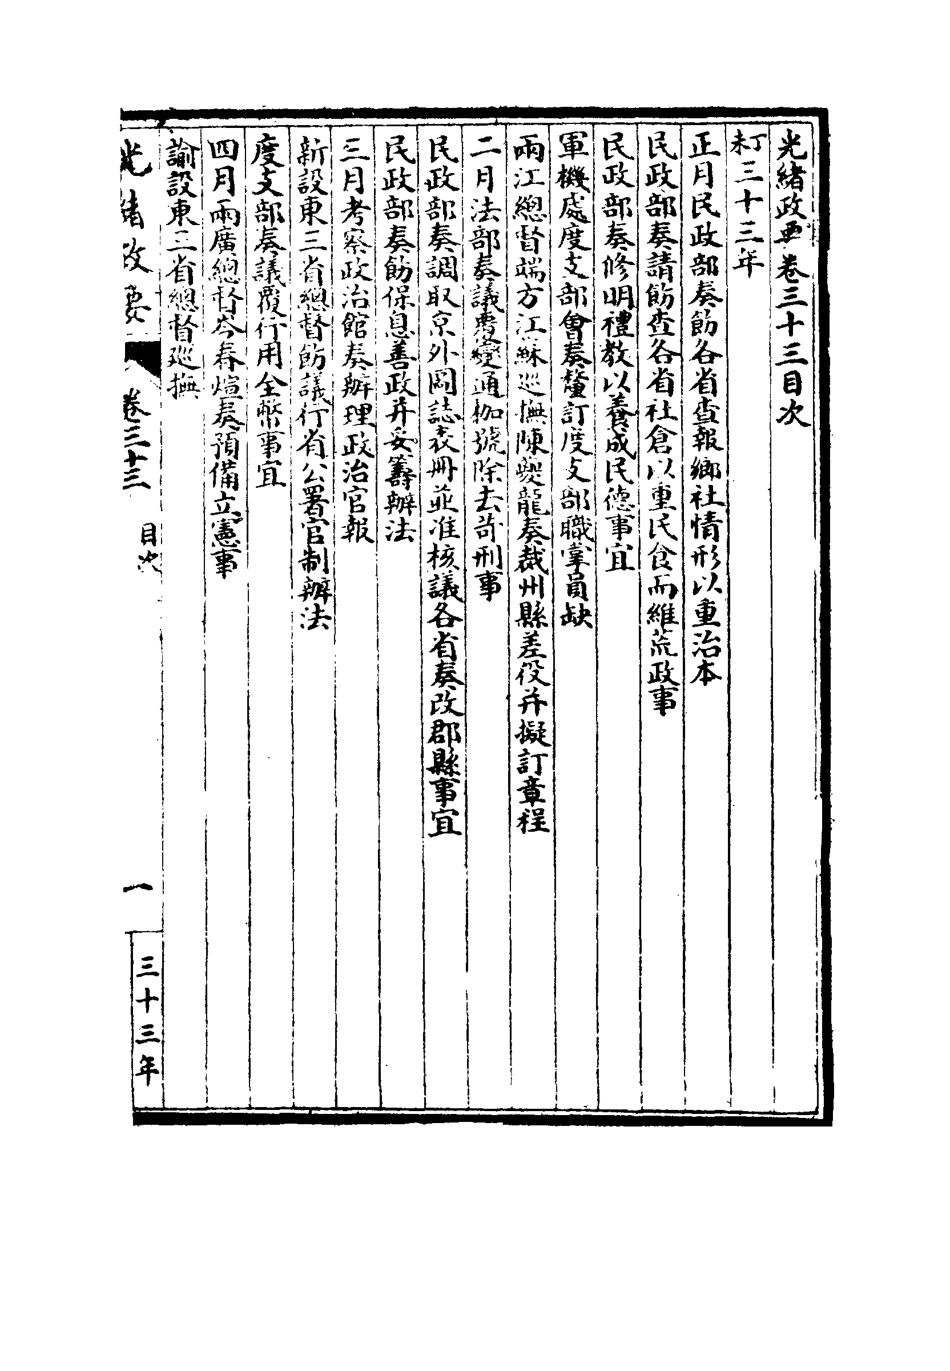 光緒政要卷三十三目次
丁未三十三年
正月民政部奏飭各省查報鄉社情形以重治本
民政部奏請飭查各省社倉以重民食而維荒政事
民政部奏修明禮教以養成民德事宜
軍機處度支部會奏釐訂度支部職掌員缺
兩江總督端方江蘇巡撫陳夔龍奏裁州縣差役并擬訂章程
二月法部奏議覆變通枷號除去苛刑事
民政部奏調取京外圖誌表冊並准核議各省奏改郡縣事宜
民政部奏飭保息善政并妥籌辦法
三月考察政治館奏辦理政治官報
新設東三省總督飭議行省公署官制辦法
度支部奏議覆行用金幣事宜
四月兩廣總督岑春煊奏預備立憲事
諭設東三省總督巡撫
光緒政要 卷三十三 目次 一 三十三年